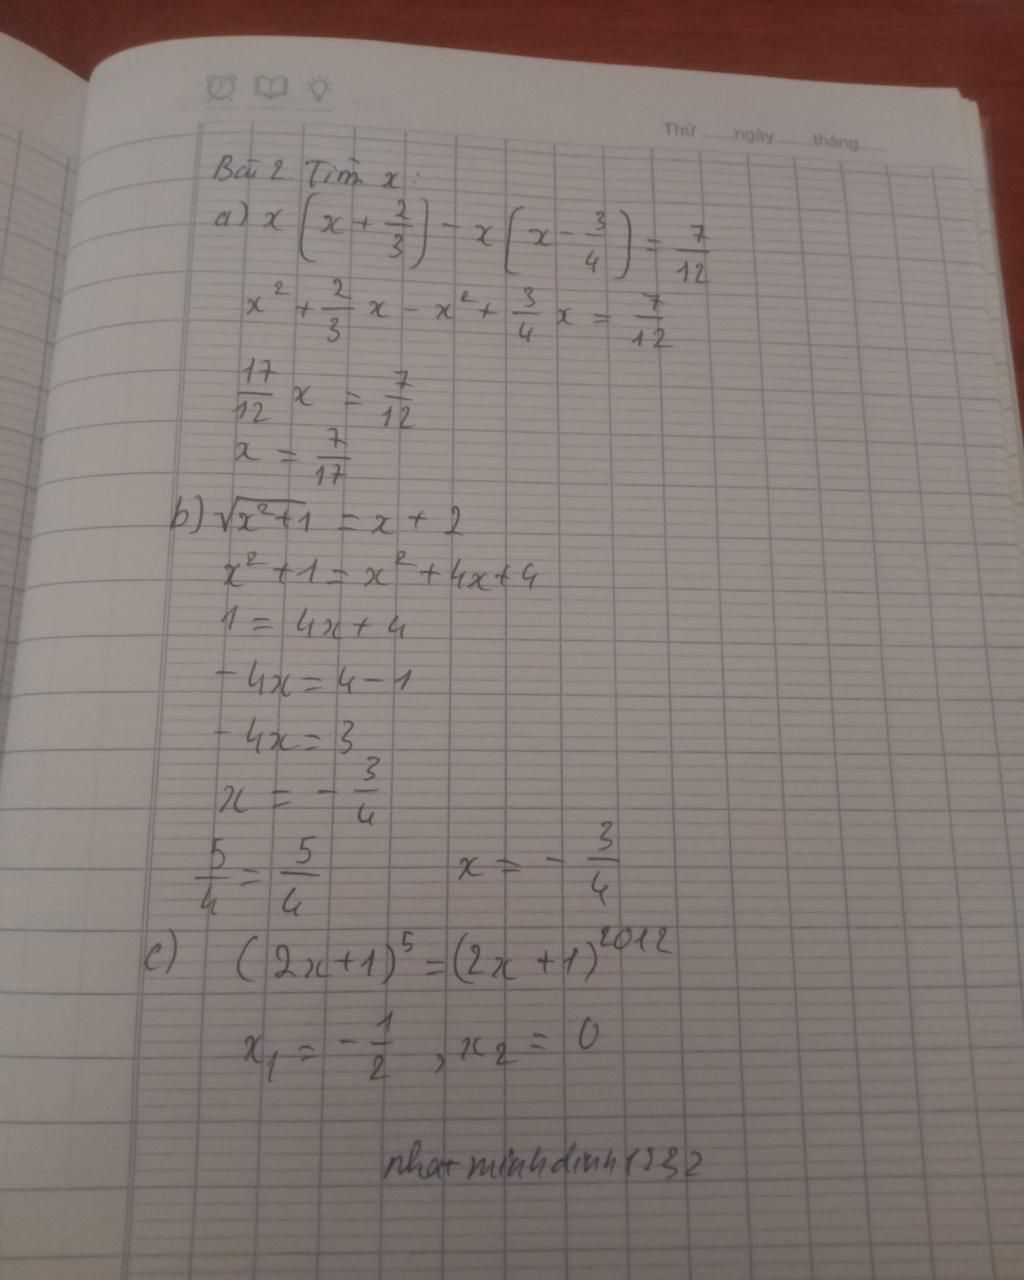 Thứ ngày tháng
Bài 2 Tìm x:
a) x(x + 2/3) - x(x - 3/4) = 7/12
x² + 2/3 x - x² + 3/4 x = 7/12
17/12 x = 7/12
x = 7/17
b) √(x²+1) = x + 2
x² + 1 = x² + 4x + 4
1 = 4x + 4
-4x = 4 - 1
-4x = 3
x = - 3/4
5/4 = 5/4 x = - 3/4
c) (2x+1)⁵ = (2x+1)²⁰¹²
x₁ = - 1/2 , x₂ = 0